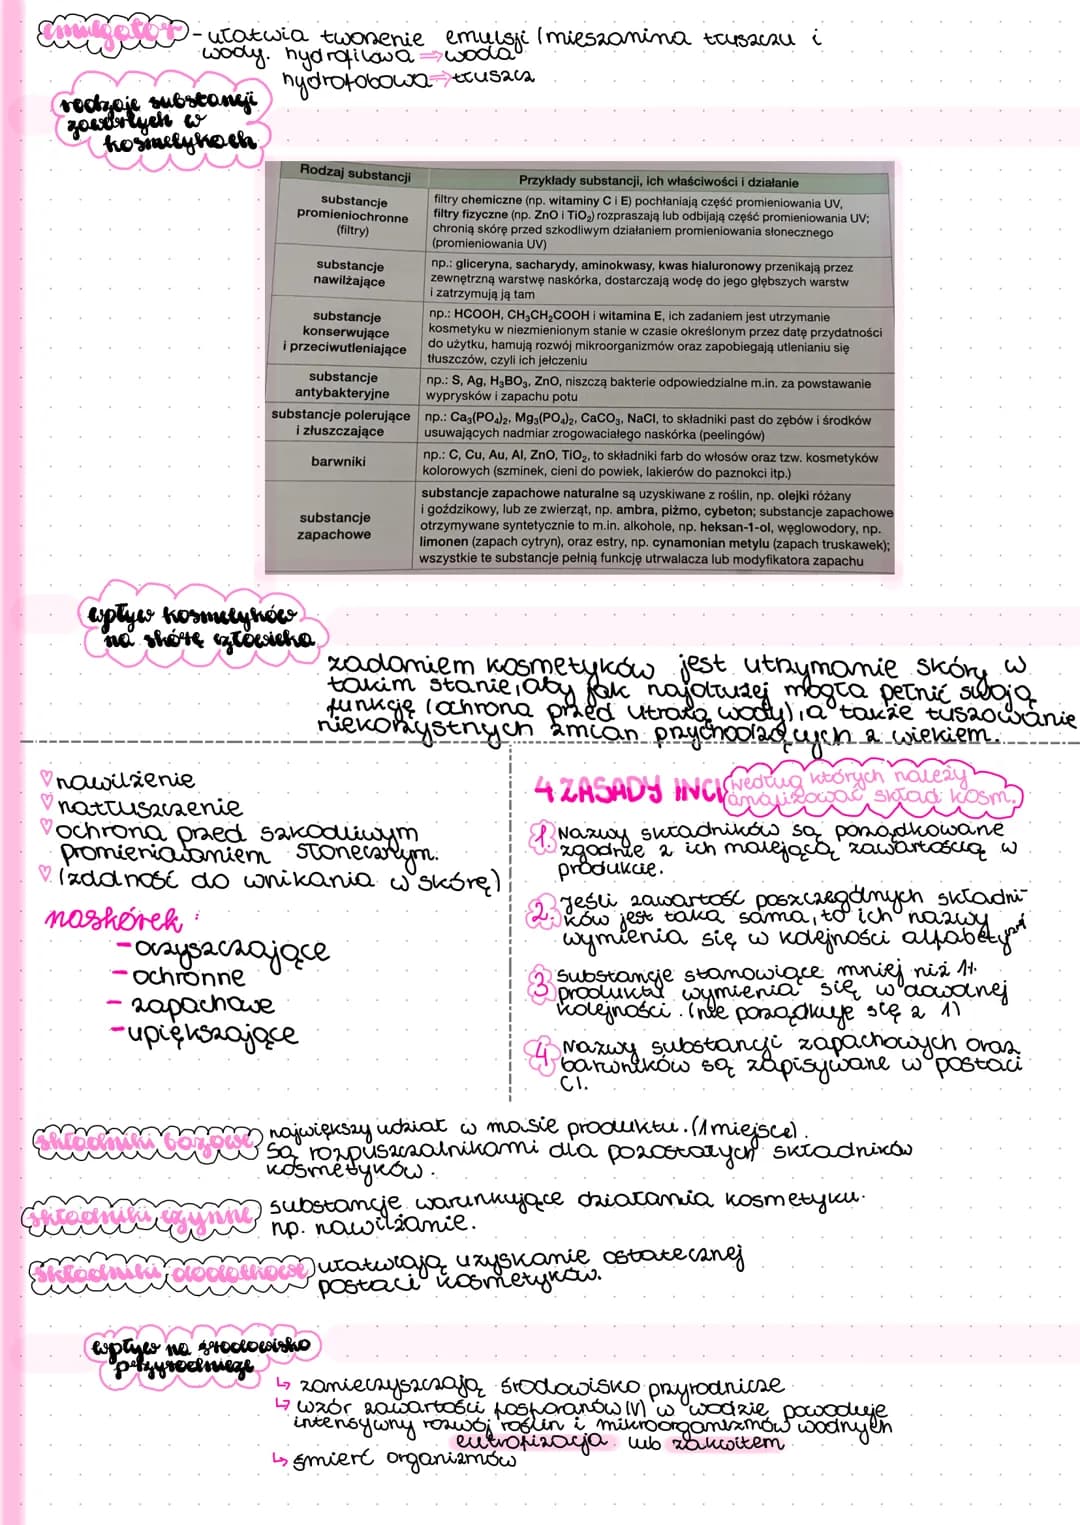 emulgator - ułatwia tworzenie emulsji (mieszanina tłuszczu i
wody. hydrofilowa ⇒ woda
hydrofobowa ⇒ tłuszcz
rodzaje substancji
zawartych w
kosmetykach
Rodzaj substancji
Przykłady substancji, ich właściwości i działanie
substancje
promieniochronne
(filtry)
filtry chemiczne (np. witaminy C i E) pochłaniają część promieniowania UV,
filtry fizyczne (np. ZnO i TiO₂) rozpraszają lub odbijają część promieniowania UV;
chronią skórę przed szkodliwym działaniem promieniowania słonecznego
(promieniowania UV)
substancje
nawilżające
np.: gliceryna, sacharydy, aminokwasy, kwas hialuronowy przenikają przez
zewnętrzną warstwę naskórka, dostarczają wodę do jego głębszych warstw
i zatrzymują ją tam
substancje
konserwujące
i przeciwutleniające
np.: HCOOH, CH₃CH₂COOH i witamina E, ich zadaniem jest utrzymanie
kosmetyku w niezmienionym stanie w czasie określonym przez datę przydatności
do użytku, hamują rozwój mikroorganizmów oraz zapobiegają utlenianiu się
tłuszczów, czyli ich jełczeniu
substancje
antybakteryjne
np.: S, Ag, H₃BO₃, ZnO, niszczą bakterie odpowiedzialne m.in. za powstawanie
wyprysków i zapachu potu
substancje polerujące
i złuszczające
np.: Ca₃(PO₄)₂, Mg₃(PO₄)₂, CaCO₃, NaCl, to składniki past do zębów i środków
usuwających nadmiar zrogowaciałego naskórka (peelingów)
barwniki
np.: C, Cu, Au, Al, ZnO, TiO₂, to składniki farb do włosów oraz tzw. kosmetyków
kolorowych (szminek, cieni do powiek, lakierów do paznokci itp.)
substancje
zapachowe
substancje zapachowe naturalne są uzyskiwane z roślin, np. olejki różany
i goździkowy, lub ze zwierząt, np. ambra, piżmo, cybeton; substancje zapachowe
otrzymywane syntetycznie to m.in. alkohole, np. heksan-1-ol, węglowodory, np.
limonen (zapach cytryn), oraz estry, np. cynamonian metylu (zapach truskawek);
wszystkie te substancje pełnią funkcję utrwalacza lub modyfikatora zapachu
wpływ kosmetyków
na skórę człowieka
zadaniem kosmetyków jest utrzymanie skóry w
takim stanie, aby jak najdłużej mogła pełnić swoją
funkcję (ochrona przed utratą wody), a także tuszowanie
niekorzystnych zmian przychodzących z wiekiem.
♡ nawilżenie
♡ natłuszczenie
♡ ochrona przed szkodliwym
promieniowaniem słonecznym.
♡ (zdolność do wnikania w skórę)
naskórek :
- oczyszczające
- ochronne
- zapachowe
- upiększające
4 ZASADY INCI (według których należy
analizować skład kosm.)
1. Nazwy składników są porządkowane
zgodnie z ich malejącą zawartością w
produkcie.
2. Jeśli zawartość poszczególnych składni-
ków jest taka sama, to ich nazwy
wymienia się w kolejności alfabety
3 Substancje stanowiące mniej niż 1%
produktu wymienia się w dowolnej
kolejności. (nie porządkuje się z 1)
4 Nazwy substancji zapachowych oraz
barwników są zapisywane w postaci
CI.
składniki bazowe największy udział w masie produktu. (1 miejsce).
Są rozpuszczalnikami dla pozostałych składników
kosmetyków.
składniki czynne substancje warunkujące działania kosmetyku.
np. nawilżanie.
składniki dodatkowe ułatwiają uzyskanie ostatecznej
postaci kosmetyków.
wpływ na środowisko
przyrodnicze
↳ zanieczyszczają środowisko przyrodnicze
↳ wzór zawartości fosforanów (V) w wodzie powoduje
intensywny rozwój roślin i mikroorganizmów wodnych
eutrofizacja lub zakwitem
↳ śmierć organizmów